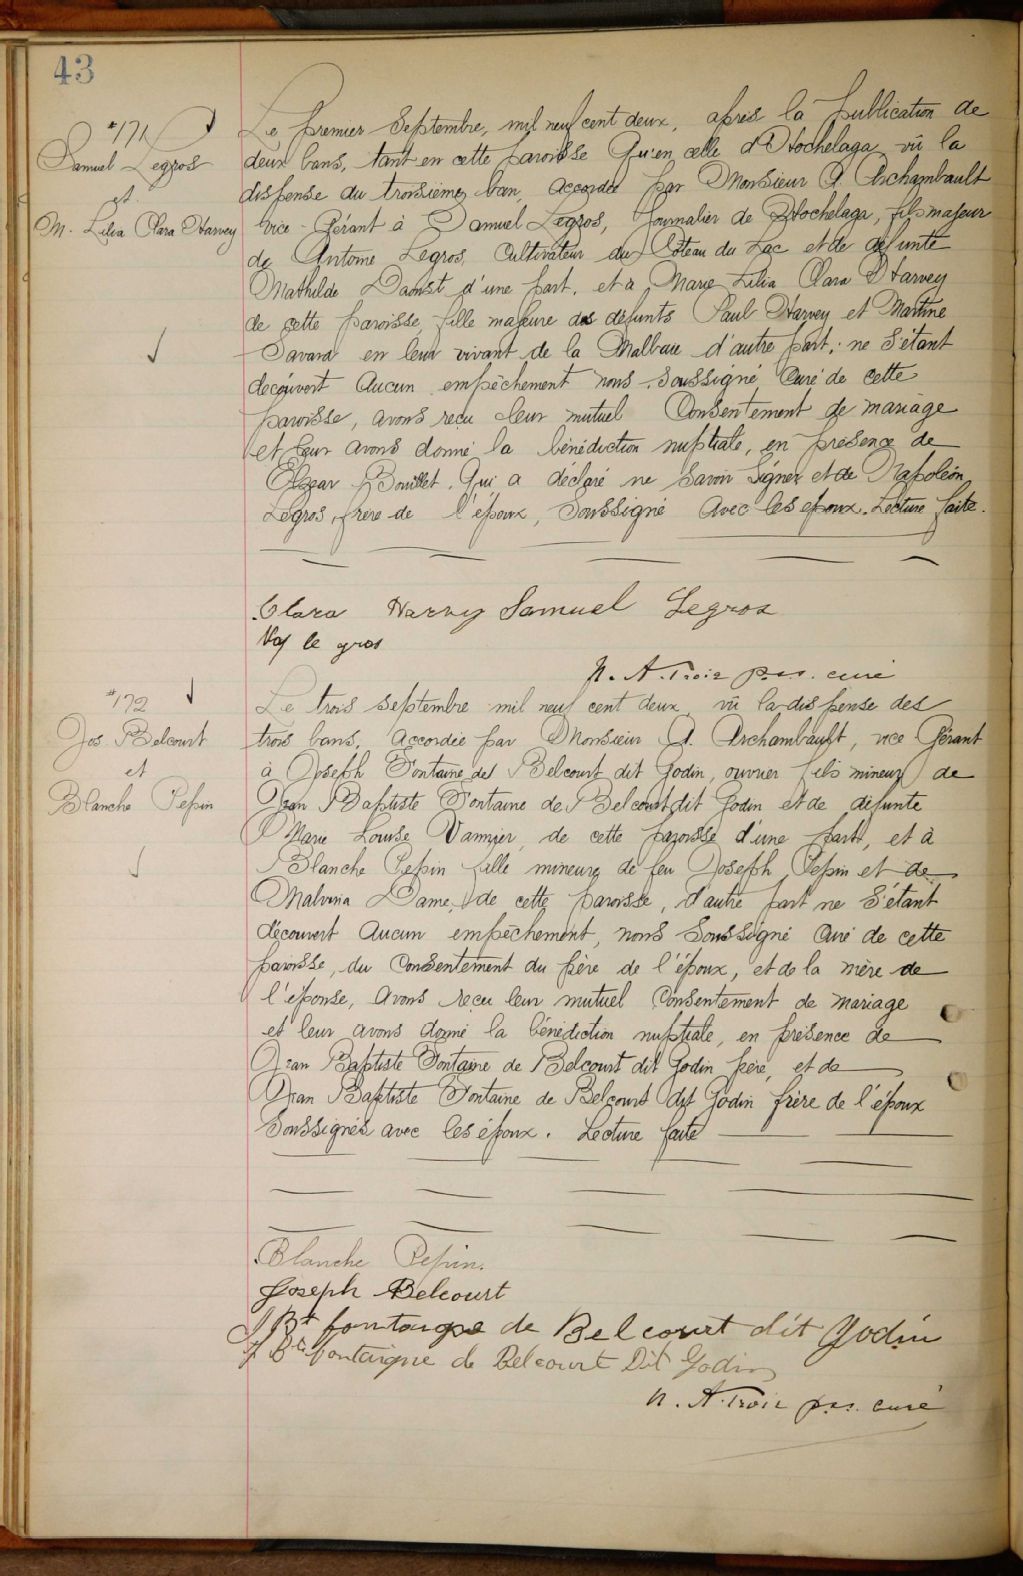 43
#171
Samuel Legros
et
M. Lilia Clara Harvey
Le premier Septembre, mil neuf cent deux, après la publication de
deux bans, tant en cette paroisse Qu'en celle d'Hochelaga, vû la
dispense du troisième ban, accordée par Monsieur A. Archambault
Vice-Gérant à Samuel Legros, Journalier de Hochelaga, fils majeur
de Antoine Legros, Cultivateur du Côteau du Lac et de défunte
Mathilde Daoust d'une part, et à Marie Lilia Clara Harvey
de cette paroisse, fille majeure des défunts Paul Harvey et Martine
Savard en leur vivant de la Malbaie d'autre part; ne s'étant
decouvert Aucun empêchement nous soussigné, Curé de cette
paroisse, avons reçu leur mutuel Consentement de mariage
et leur avons donné la bénédiction nuptiale, en présence de
Elzear Bouillet, Qui a déclaré ne savoir Signer et de Napoléon
Legros, frère de l'époux, Soussigné Avec les epoux. Lecture faite.
Clara Harvey Samuel Legros
Nap le gros
N. A. Troie p.s.s. curé
#172
Jos. Belcourt
et
Blanche Pepin
Le trois septembre mil neuf cent deux, vû la dispense des
trois bans, accordée par Monsieur A. Archambault, vice Gérant
à Joseph Fontaine de Belcourt dit Godin, ouvrier fils mineur de
Jean Baptiste Fontaine de Belcourt dit Godin et de défunte
Marie Louise Vannier, de cette paroisse d'une part, et à
Blanche Pepin fille mineure de feu Joseph Pepin et de
Malvina Dame, de cette paroisse, d'autre part ne s'étant
découvert Aucun empêchement, nous Soussigné Curé de cette
paroisse, du Consentement du père de l'époux, et de la mère de
l'épouse, Avons reçu leur mutuel Consentement de mariage
et leur avons donné la bénédiction nuptiale, en présence de
Jean Baptiste Fontaine de Belcourt dit Godin père, et de
Jean Baptiste Fontaine de Belcourt dit Godin frère de l'époux
Soussignés avec les époux. Lecture faite
Blanche Pepin.
Joseph Belcourt
J Bt fontaigne de Belcourt dit Godin
J Bte fontaigne de Belcourt Dit Godin
N. A. Troie p.s.s. curé